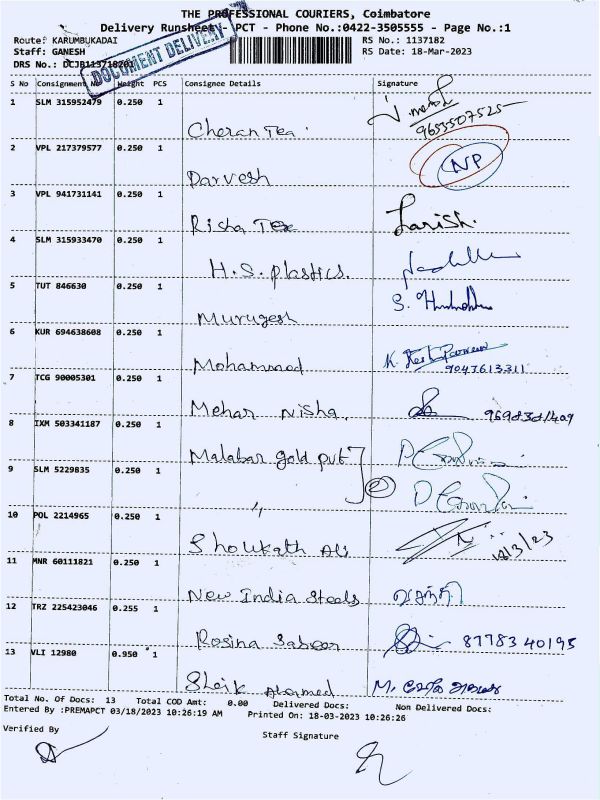 THE PROFESSIONAL COURIERS, Coimbatore
Delivery Runsheet - PCT - Phone No.:0422-3505555 - Page No.:1
Route: KARUMBUKADAI RS No.: 1137182
Staff: GANESH RS Date: 18-Mar-2023
DRS No.: DCJB113718201
DOCUMENT DELIVERY
S No Consignment No Weight PCS Consignee Details Signature
1 SLM 315952479 0.250 1
Cheran Tea. 9655507525
2 VPL 217379577 0.250 1 NP
Darvesh
3 VPL 941731141 0.250 1
Risha Tex Larish.
4 SLM 315933470 0.250 1
H.S. plastics.
5 TUT 846630 0.250 1 S.
Murugesh
6 KUR 694638608 0.250 1
Mohammed K. 9047613311
7 TCG 90005301 0.250 1
Mehar Nisha.
8 IXM 503341187 0.250 1
Malabar gold pvt
9 SLM 5229835 0.250 1
"
10 POL 2214965 0.250 1
Showkath Ali 18/3/23
11 MNR 60111821 0.250 1
New India Steels
12 TRZ 225423046 0.255 1
Rosina Sabeer 87783 40195
13 VLI 12980 0.950 1
Sheik Ahamed M.
Total No. Of Docs: 13 Total COD Amt: 0.00 Delivered Docs: Non Delivered Docs:
Entered By :PREMAPCT 03/18/2023 10:26:19 AM Printed On: 18-03-2023 10:26:26
Verified By Staff Signature